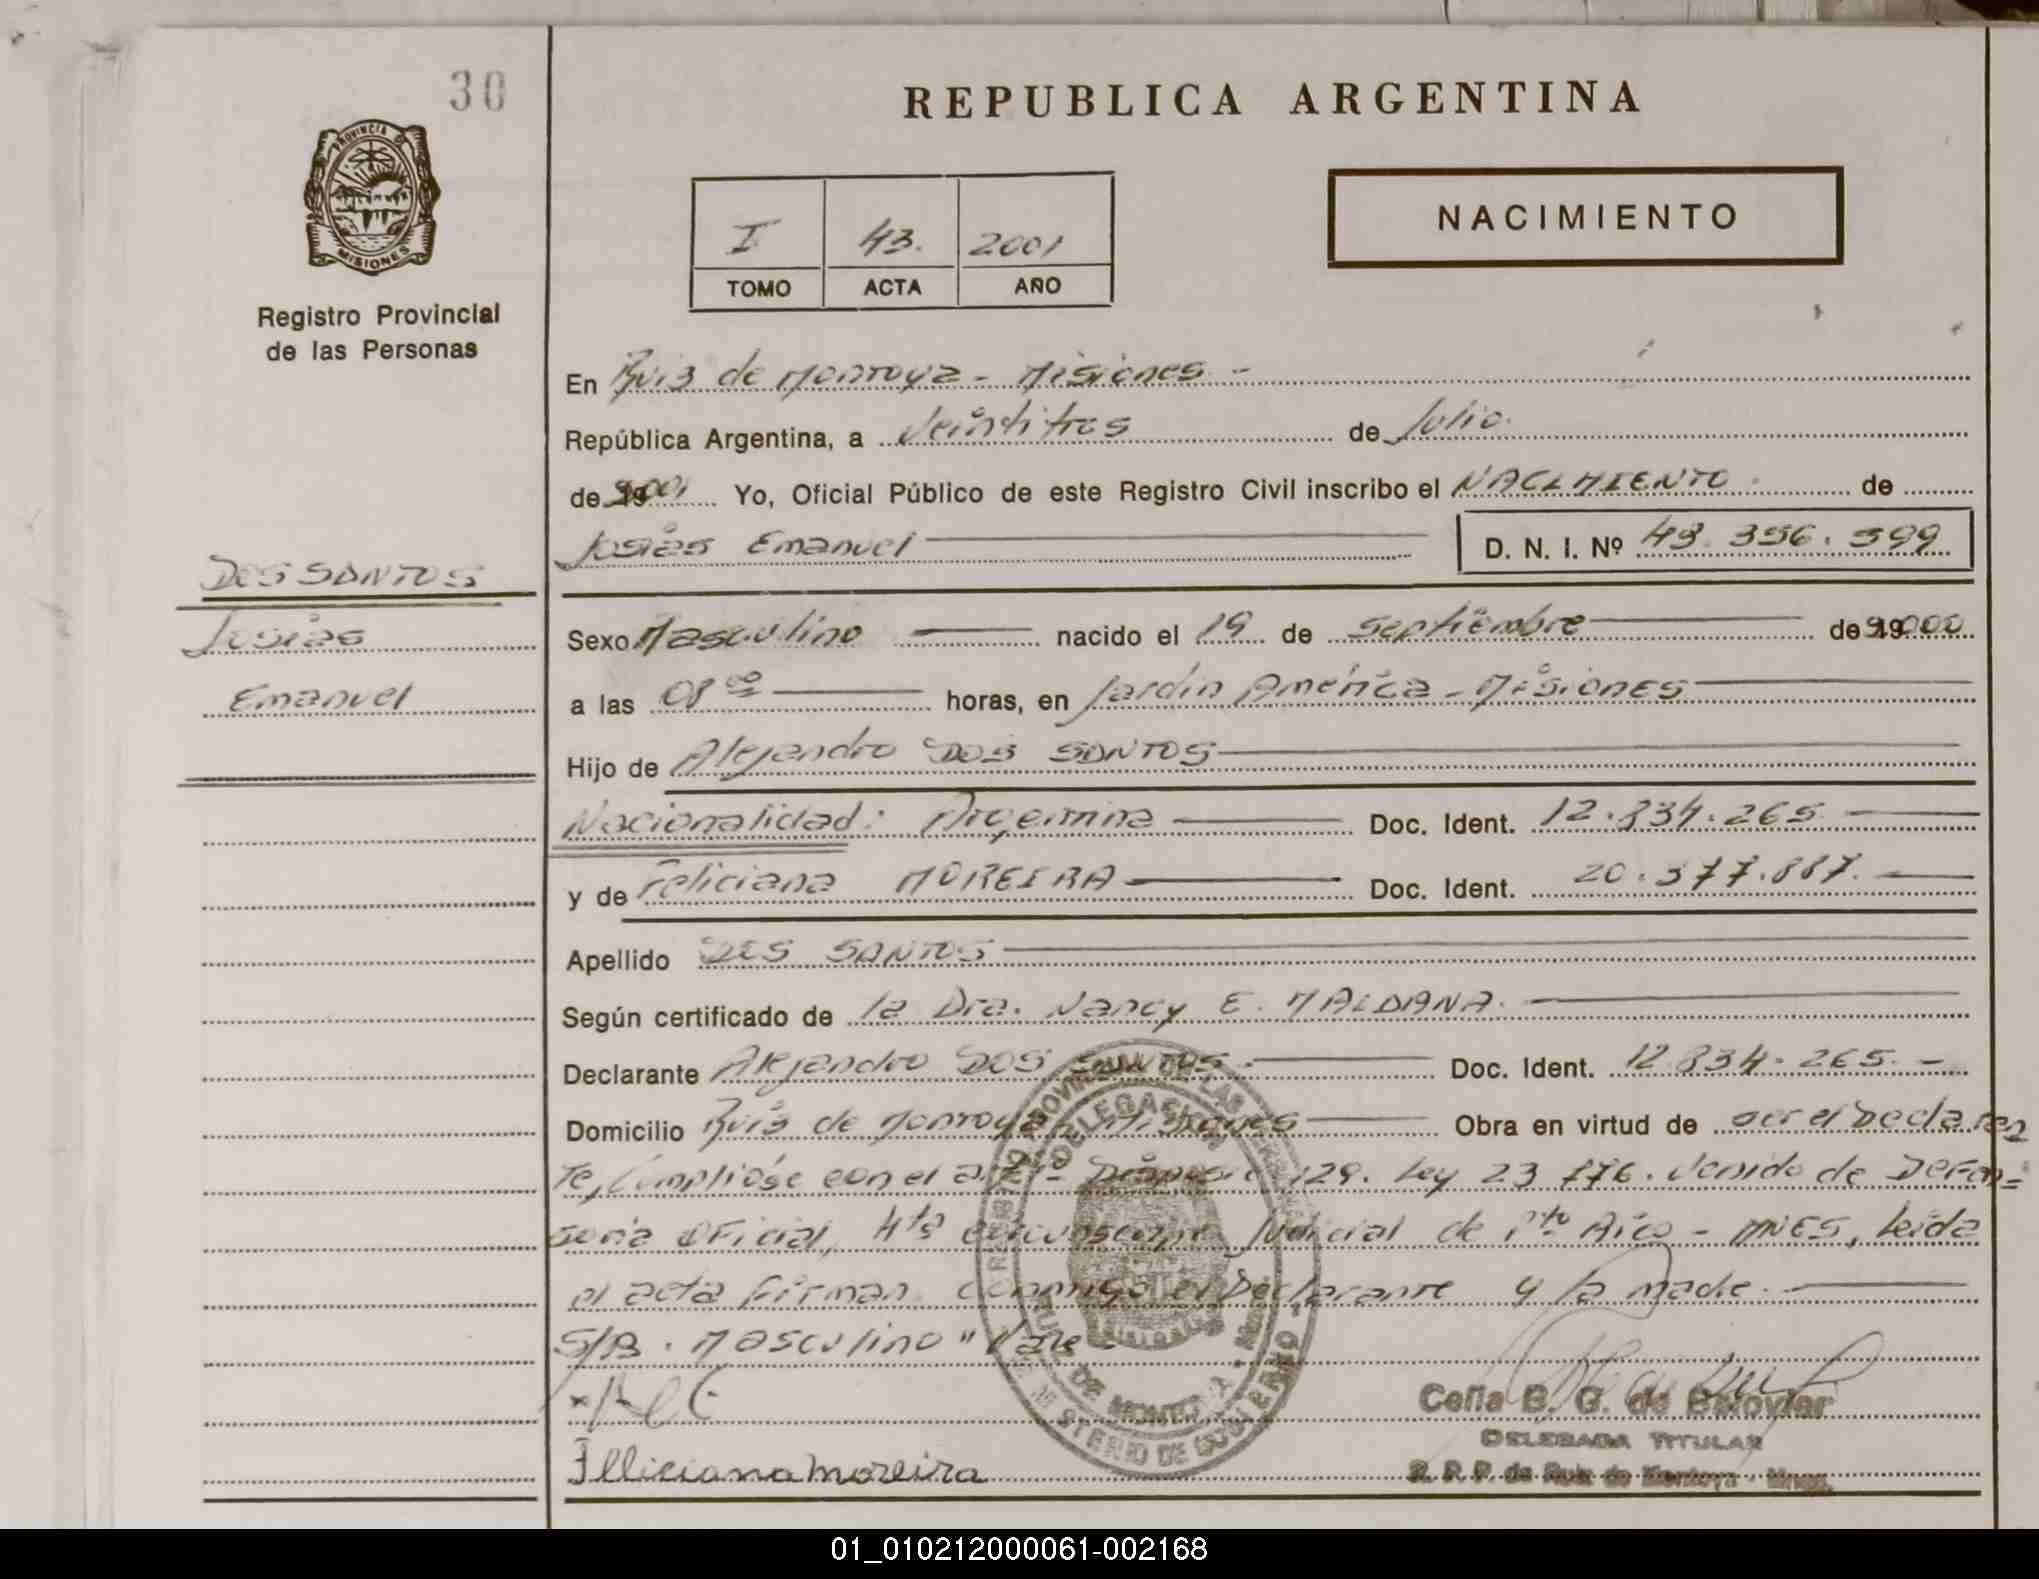 30
REPUBLICA ARGENTINA
PROVINCIA DE
MISIONES
Registro Provincial
de las Personas
I 43. 2001
TOMO ACTA AÑO
NACIMIENTO
En Ruiz de Montoya - Misiones -
República Argentina, a Veintitres de Julio.
de 2001 Yo, Oficial Público de este Registro Civil inscribo el NACIMIENTO de
Josias Emanuel D. N. I. Nº 43. 356. 599
DOS SANTOS
Josias
Emanuel
Sexo Masculino nacido el 19 de Septiembre de 2000
a las 08 00 horas, en Jardín América - Misiones
Hijo de Alejandro DOS SANTOS
Nacionalidad: Argentina Doc. Ident. 12.834.265
y de Feliciana MOREIRA Doc. Ident. 20.377.887.
Apellido DOS SANTOS
Según certificado de la Dra. Nancy E. MALDANA.
Declarante Alejandro DOS SANTOS. Doc. Ident. 12.834.265.-
Domicilio Ruiz de Montoya - Misiones Obra en virtud de ser el Declaran
te, Cumplióse con el art. 129. Ley 23 776. Venido de Defen=
soría Oficial, 4ta Judicial de Pto Rico - MNES, Leida
el acta firman conmigo el Declarante y la madre.
S/B. Masculino" Vale
Feliciana Moreira
Celia B. G. de
DELEGADA TITULAR
R. R. P. de Ruiz de Montoya - Mnes.
DELEGACION
DE MONTOYA
MINISTERIO DE GOBIERNO
01_010212000061-002168